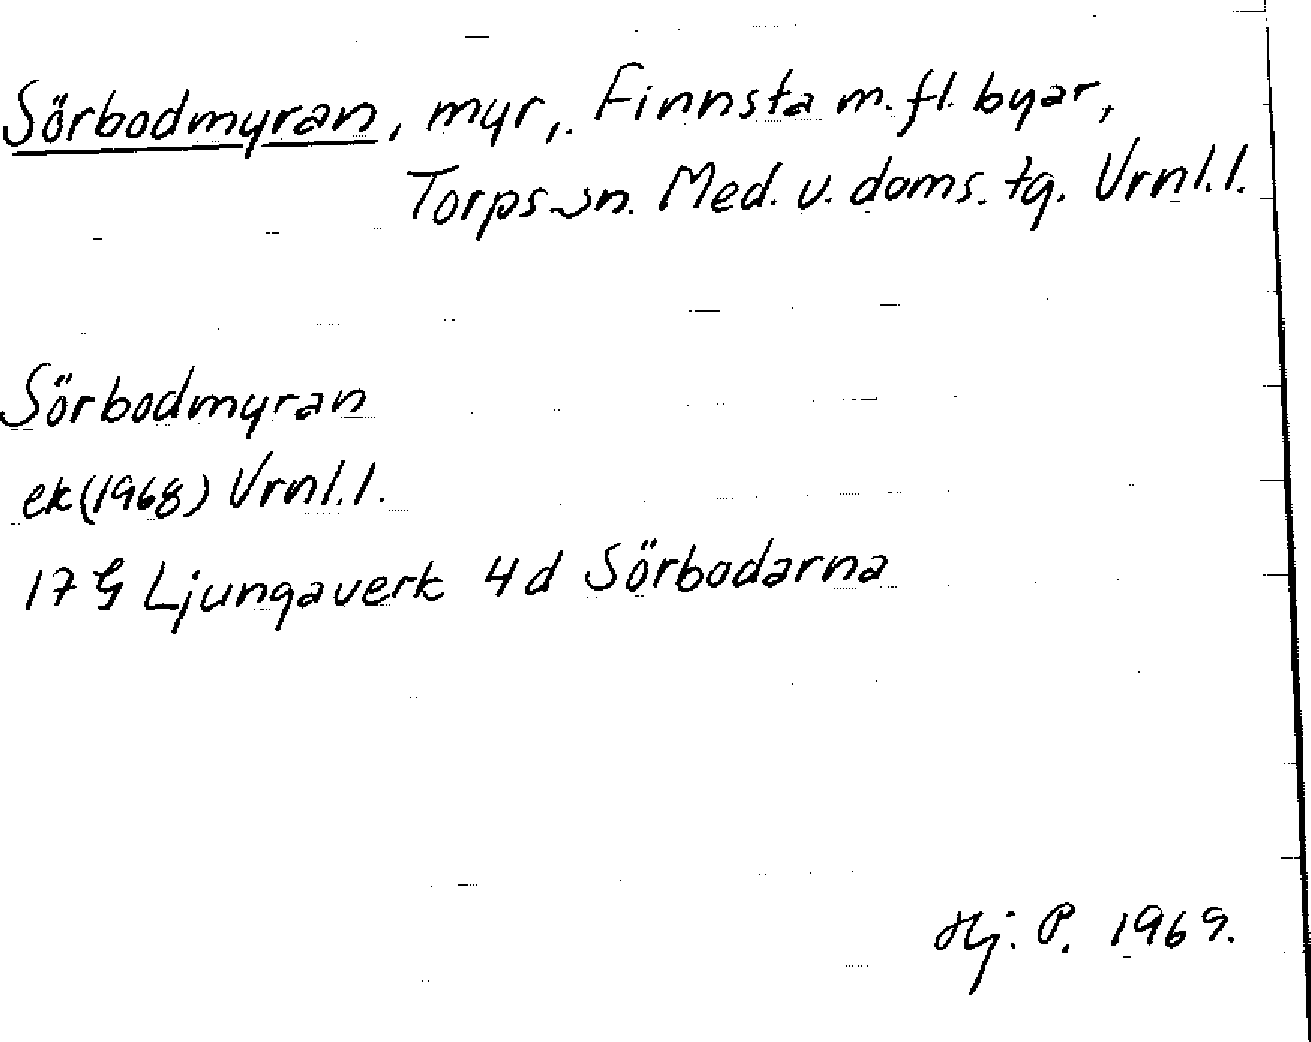 Sörbodmyran, myr, Finnsta m.fl. byar,
Torps sn. Med. v. doms. tg. Vrnl.l.
Sörbodmyran
ek (1968) Vrnl.l.
17 G Ljungaverk 4d Sörbodarna
Hj. P. 1969.